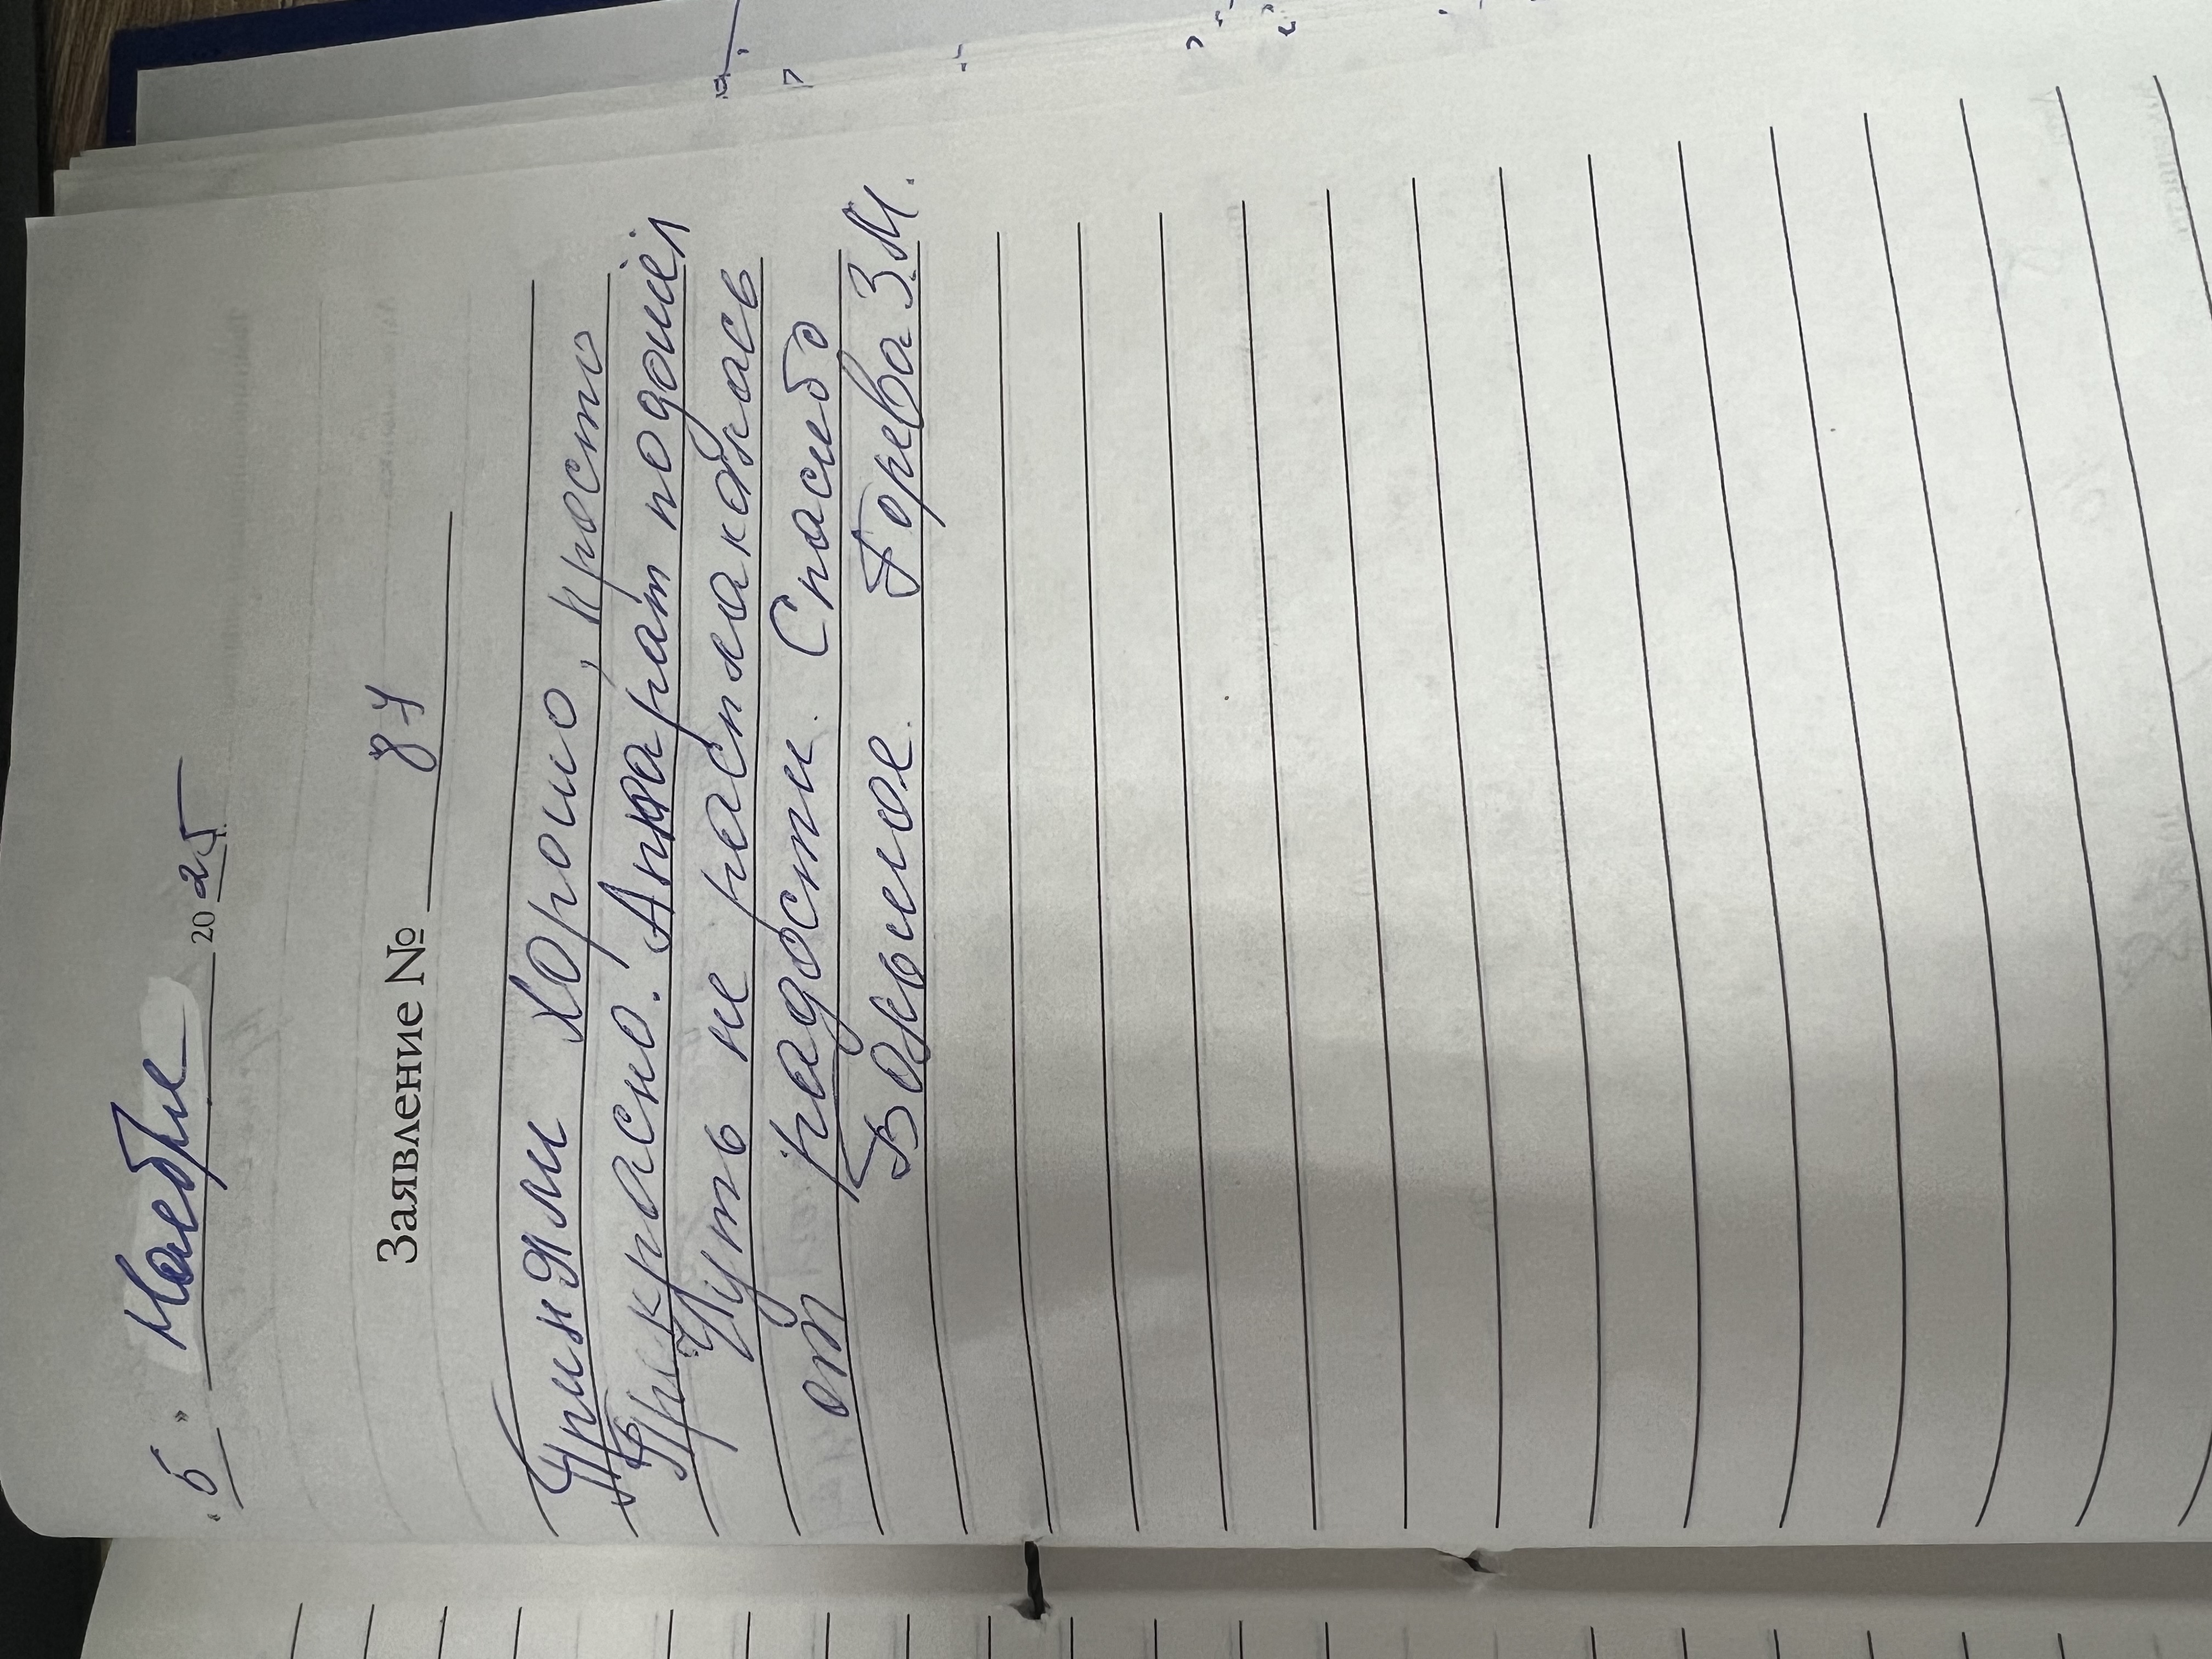 « 5 » Ноября 2025 г.
Заявление № 87
Приняли хорошо, просто
Прикрасно. Аппарат подошёл
Чуть не расплакалась
от радости. Спасибо
Большое. Горева З.М.